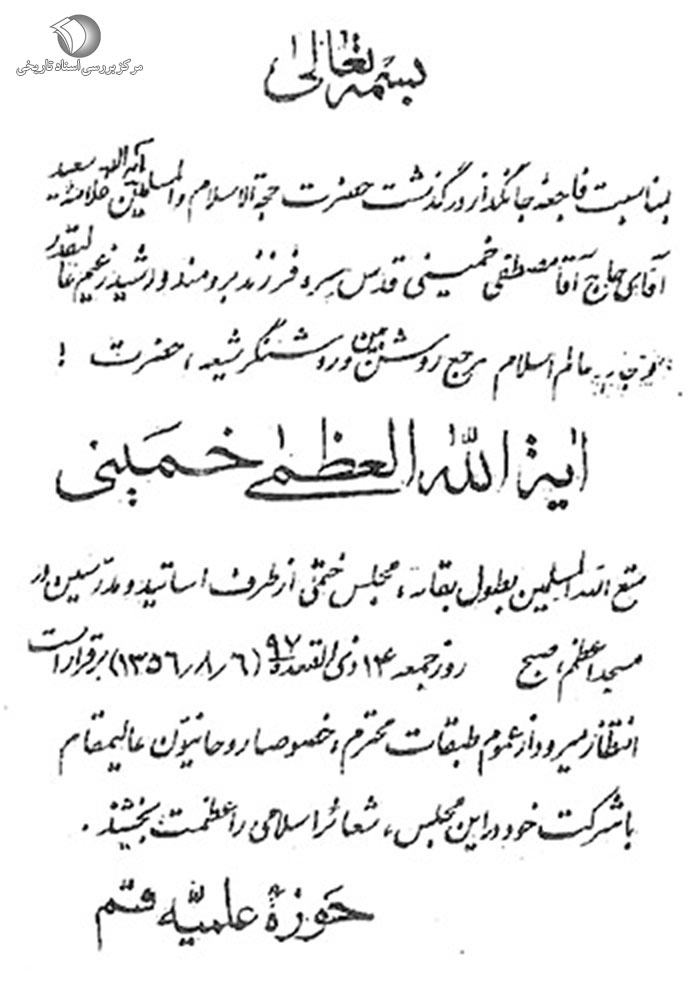 مرکز بررسی اسناد تاریخی
بسمه تعالی
بمناسبت فاجعهٔ جانگداز درگذشت حضرت حجة الاسلام والمسلمین آیة الله سعید علامهٔ
آقای حاج آقا مصطفی خمینی قدس سره فرزند برومند و رشید زعیم عالیقدر
عالم اسلام مرجع روشن بین و روشنگر شیعه، حضرت !
ایة الله العظمی خمینی
متع الله المسلمین بطول بقائه، مجلس ختمی از طرف اساتید و مدرسین در
مسجد اعظم، صبح روز جمعه ۱۴ ذی القعده ۹۷ (۱۳۵۶/۸/۶) برقرار است
انتظار میرود از عموم طبقات محترم، خصوصا روحانیون عالیمقام
با شرکت خود در این مجلس، شعائر اسلامی را عظمت بخشند.
حوزهٔ علمیه قم